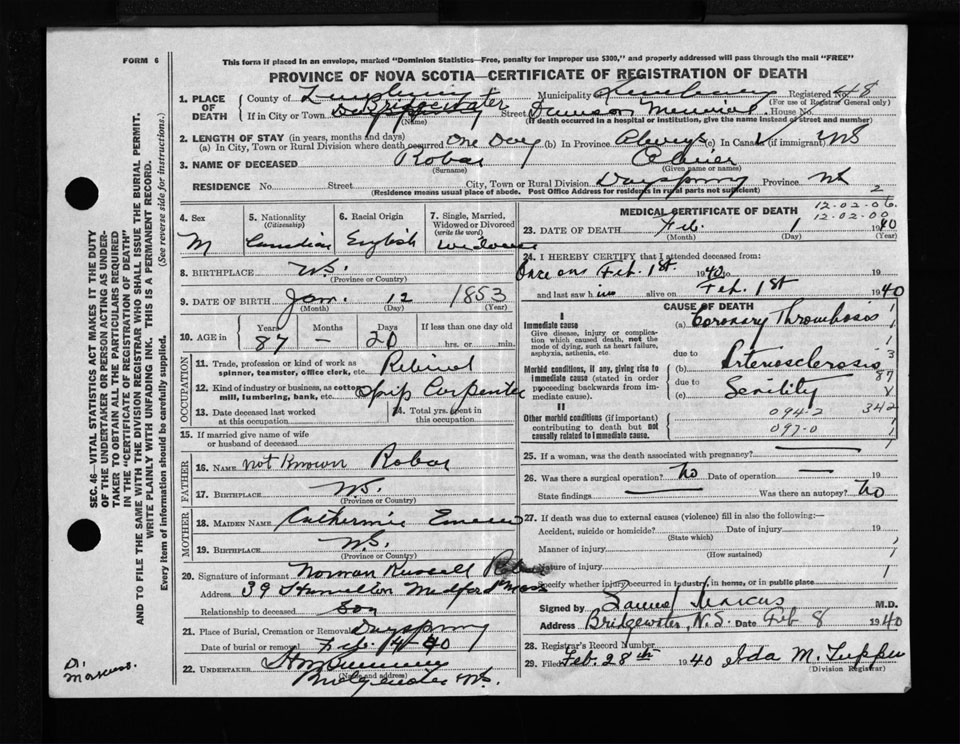 FORM 6
This form if placed in an envelope, marked "Dominion Statistics—Free, penalty for improper use $300," and properly addressed will pass through the mail "FREE"
PROVINCE OF NOVA SCOTIA—CERTIFICATE OF REGISTRATION OF DEATH
SEC. 46—VITAL STATISTICS ACT MAKES IT THE DUTY
OF THE UNDERTAKER OR PERSON ACTING AS UNDER-
TAKER TO OBTAIN ALL THE PARTICULARS REQUIRED
IN THE "CERTIFICATE OF REGISTRATION OF DEATH"
AND TO FILE THE SAME WITH THE DIVISION REGISTRAR WHO SHALL ISSUE THE BURIAL PERMIT.
WRITE PLAINLY WITH UNFADING INK. THIS IS A PERMANENT RECORD.
Every item of information should be carefully supplied. (See reverse side for instructions.)
1. PLACE OF DEATH County of Lunenburg Municipality Lunenburg Registered No. 48
(For use of Registrar General only)
If in City or Town Bridgewater Street Dawson Memorial House No.
(Name) (If death occurred in a hospital or institution, give the name instead of street and number)
2. LENGTH OF STAY (in years, months and days)
(a) In City, Town or Rural Division where death occurred One Day (b) In Province Always (c) In Canada (if immigrant) NS
3. NAME OF DECEASED Robar
(Surname) (Given name or names)
RESIDENCE No. Street City, Town or Rural Division Dayspring Province NS
(Residence means usual place of abode. Post Office Address for Residents in rural parts not sufficient) 2
4. Sex M
5. Nationality (Citizenship) Canadian
6. Racial Origin English
7. Single, Married, Widowed or Divorced (write the word)
8. BIRTHPLACE N.S.
(Province or Country)
9. DATE OF BIRTH Jan. 12 1853
(Month) (Day) (Year)
10. AGE in Years 87 Months — Days 20 If less than one day old
hrs. or min.
OCCUPATION
11. Trade, profession or kind of work as spinner, teamster, office clerk, etc. Retired
12. Kind of industry or business, as cotton mill, lumbering, bank, etc. Ship Carpenter
13. Date deceased last worked at this occupation
14. Total yrs. spent in this occupation
15. If married give name of wife or husband of deceased
FATHER
16. NAME Not Known Robar
17. BIRTHPLACE N.S.
(Province or Country)
MOTHER
18. MAIDEN NAME Catherine
19. BIRTHPLACE N.S.
(Province or Country)
20. Signature of informant Norman Russell Robar
Address 39 Hamilton Medford Mass
Relationship to deceased Son
21. Place of Burial, Cremation or Removal Dayspring
Date of burial or removal Feb. 4 40
22. UNDERTAKER
(Name and address)
Bridgewater N.S.
Dr. Marcus.
MEDICAL CERTIFICATE OF DEATH
12-02-06.
12-02-00
23. DATE OF DEATH Feb. 1 1940
(Month) (Day) (Year)
24. I HEREBY CERTIFY that I attended deceased from:
Once on Feb. 1st 1940 to 19
and last saw him alive on Feb. 1st 1940
CAUSE OF DEATH
I
Immediate cause
Give disease, injury or complication which caused death, not the mode of dying, such as heart failure, asphyxia, asthenia, etc.
(a) Coronary Thrombosis 1
1
Morbid conditions, if any, giving rise to immediate cause (stated in order proceeding backwards from immediate cause).
due to (b) Arterosclerosis 3
due to (c) Senility 87
II
Other morbid conditions (if important) contributing to death but not causally related to immediate cause.
094-2 342
097-0 1
25. If a woman, was the death associated with pregnancy? —
26. Was there a surgical operation? No Date of operation — 19
State findings — Was there an autopsy? No
27. If death was due to external causes (violence) fill in also the following:—
Accident, suicide or homicide? Date of injury 19
(State which)
Manner of injury
(How sustained)
Nature of injury 1
Specify whether injury occurred in industry, in home, or in public place
Signed by Samuel Marcus M.D.
Address Bridgewater, N.S. Date Feb 8 1940
28. Registrar's Record Number
29. Filed Feb. 28th 1940 Ida M. Tupper
(Division Registrar)